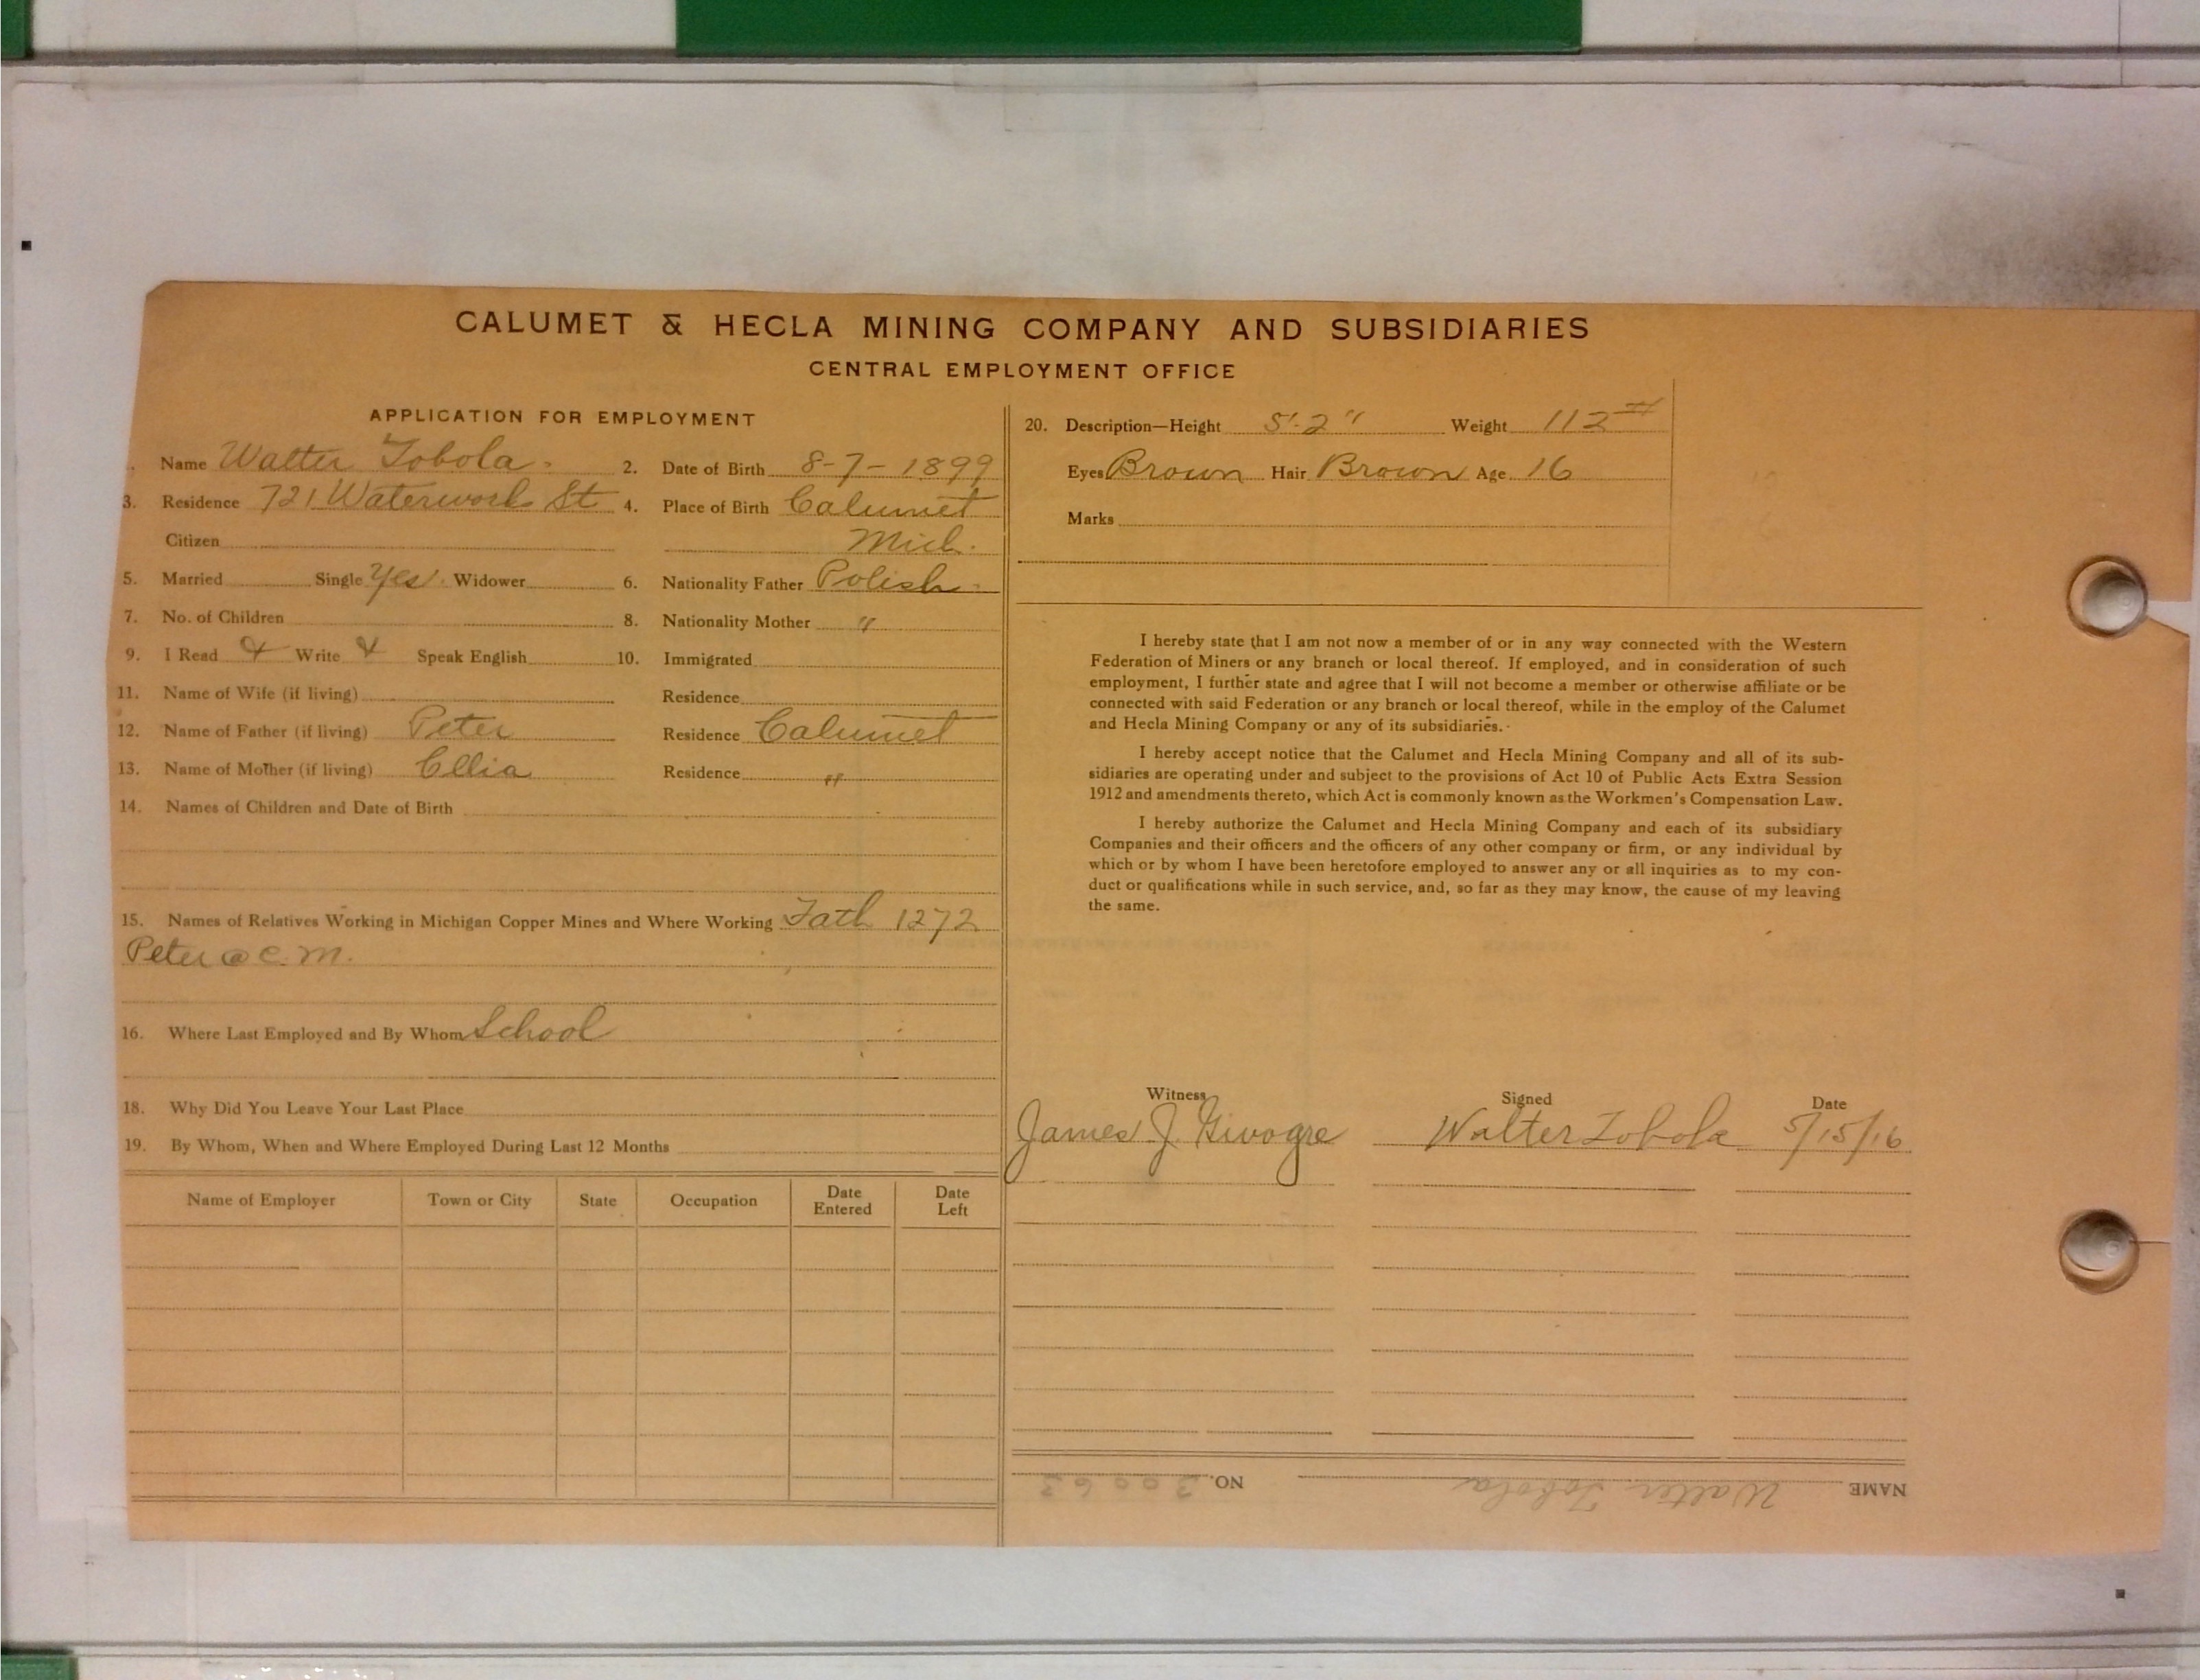 CALUMET & HECLA MINING COMPANY AND SUBSIDIARIES
CENTRAL EMPLOYMENT OFFICE
APPLICATION FOR EMPLOYMENT
Name Walter Tobola. 2. Date of Birth 8-7-1899
3. Residence 721 Waterworks St 4. Place of Birth Calumet
Citizen Mich.
5. Married Single Yes. Widower 6. Nationality Father Polish.
7. No. of Children 8. Nationality Mother "
9. I Read Write Speak English 10. Immigrated
11. Name of Wife (if living) Residence
12. Name of Father (if living) Peter Residence Calumet
13. Name of Mother (if living) Cllia Residence "
14. Names of Children and Date of Birth
15. Names of Relatives Working in Michigan Copper Mines and Where Working Fath 1272
Peter @ C. M.
16. Where Last Employed and By Whom School
18. Why Did You Leave Your Last Place
19. By Whom, When and Where Employed During Last 12 Months
Name of Employer Town or City State Occupation Date Entered Date Left
20. Description—Height 5'.2" Weight 112 #
Eyes Brown Hair Brown Age 16
Marks
I hereby state that I am not now a member of or in any way connected with the Western
Federation of Miners or any branch or local thereof. If employed, and in consideration of such
employment, I further state and agree that I will not become a member or otherwise affiliate or be
connected with said Federation or any branch or local thereof, while in the employ of the Calumet
and Hecla Mining Company or any of its subsidiaries.
I hereby accept notice that the Calumet and Hecla Mining Company and all of its sub-
sidiaries are operating under and subject to the provisions of Act 10 of Public Acts Extra Session
1912 and amendments thereto, which Act is commonly known as the Workmen's Compensation Law.
I hereby authorize the Calumet and Hecla Mining Company and each of its subsidiary
Companies and their officers and the officers of any other company or firm, or any individual by
which or by whom I have been heretofore employed to answer any or all inquiries as to my con-
duct or qualifications while in such service, and, so far as they may know, the cause of my leaving
the same.
Witness Signed Date
James J. Walter Tobola 5/15/16
NAME Walter Tobola NO. 20062